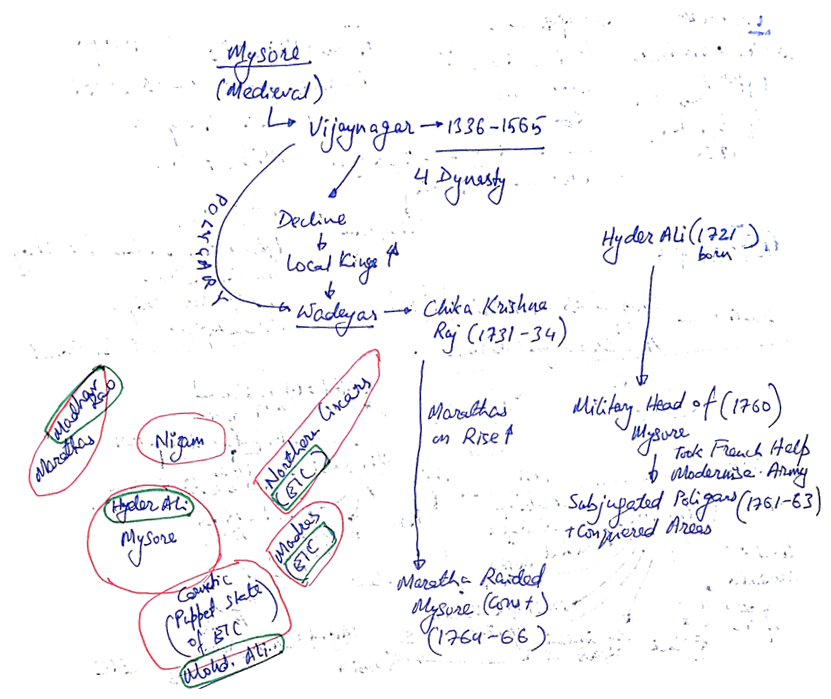 2
Mysore
(Medieval)
Vijaynagar → 1336-1565
4 Dynasty
POLYGARY
Decline
Local Kings ↑
Wadeyar → Chika Krishna
Raj (1731-34)
Marathas
on Rise ↑
Maratha Raided
Mysore (Cont)
(1764-66)
Hyder Ali (1721)
born
Military Head of (1760)
Mysore
Took French Help
Modernise Army
Subjugated Poligars (1761-63)
+ Conquered Areas
Madhav
Rao
Marathas
Nizam
Northern Circars
(EIC)
Hyder Ali
Mysore
Madras
EIC
Carnatic
(Puppet State
of EIC)
Mohd. Ali